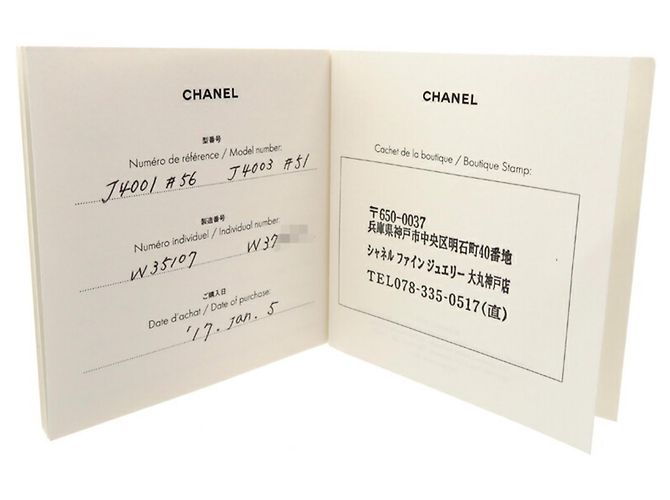 CHANEL
型番号
Numéro de référence / Model number:
J4001 #56 J4003 #51
製造番号
Numéro individuel / Individual number:
W35107 W37
ご購入日
Date d'achat / Date of purchase:
'17. Jan. 5
CHANEL
Cachet de la boutique / Boutique Stamp:
〒650-0037
兵庫県神戸市中央区明石町40番地
シャネル ファイン ジュエリー 大丸神戸店
TEL078-335-0517(直)